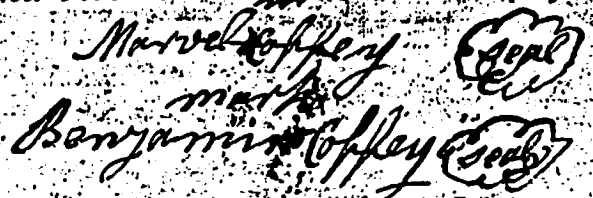 Marvel Coffey seal
mark
Benjamin Coffey seal